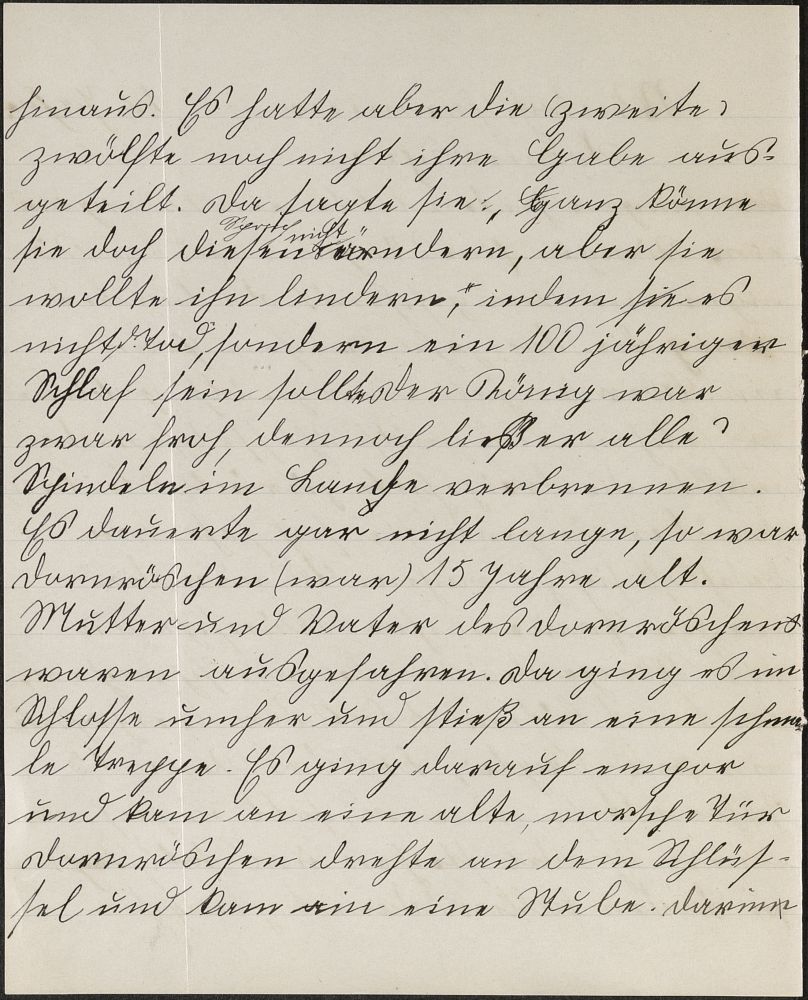 hinaus. Es hatte aber die (zweite)
zwölfte noch nicht ihre Gabe aus-
geteilt. Da sagte sie:, Ganz könne
sie doch diesen Spruch nicht ändern, aber sie
wollte ihn lindern," indem sie es
nicht d. Tod, sondern ein 100 jähriger
Schlaf sein sollte. Der König war
zwar froh, dennoch ließ er alle
Spindeln im Lande verbrennen.
Es dauerte gar nicht lange, so war
Dornröschen (war) 15 Jahre alt.
Mutter und Vater des Dornröschens
waren ausgefahren. Da ging es im
Schlosse umher und stieß an eine schma-
le Treppe. Es ging darauf empor
und kam an eine alte, morsche Tür
Dornröschen drehte an dem Schlüs-
sel und kam in eine Stube. Darin